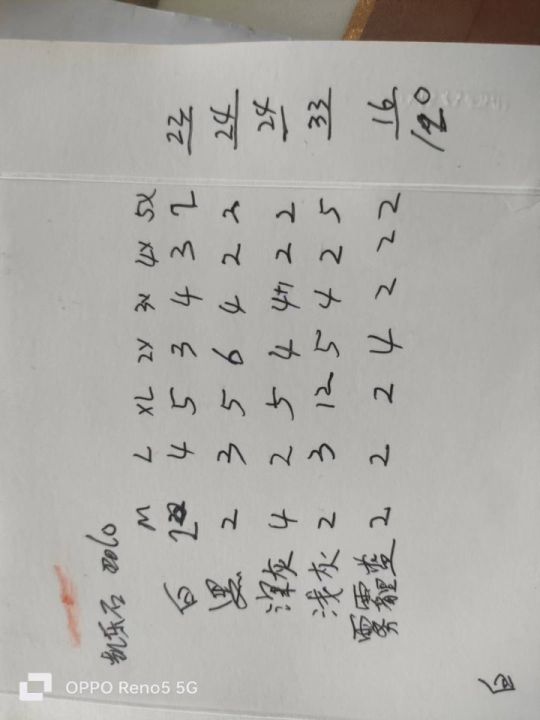 凯乐石 polo
M L XL 2X 3X 4X 5X
白 2 4 5 3 4 3 2 23
黑 2 3 5 6 4 2 2 24
深灰 4 2 5 4 4+1 2 2 24
浅灰 2 3 12 5 4 2 5 33
雾霾蓝 2 2 2 4 2 2 2 16
120
OPPO Reno5 5G